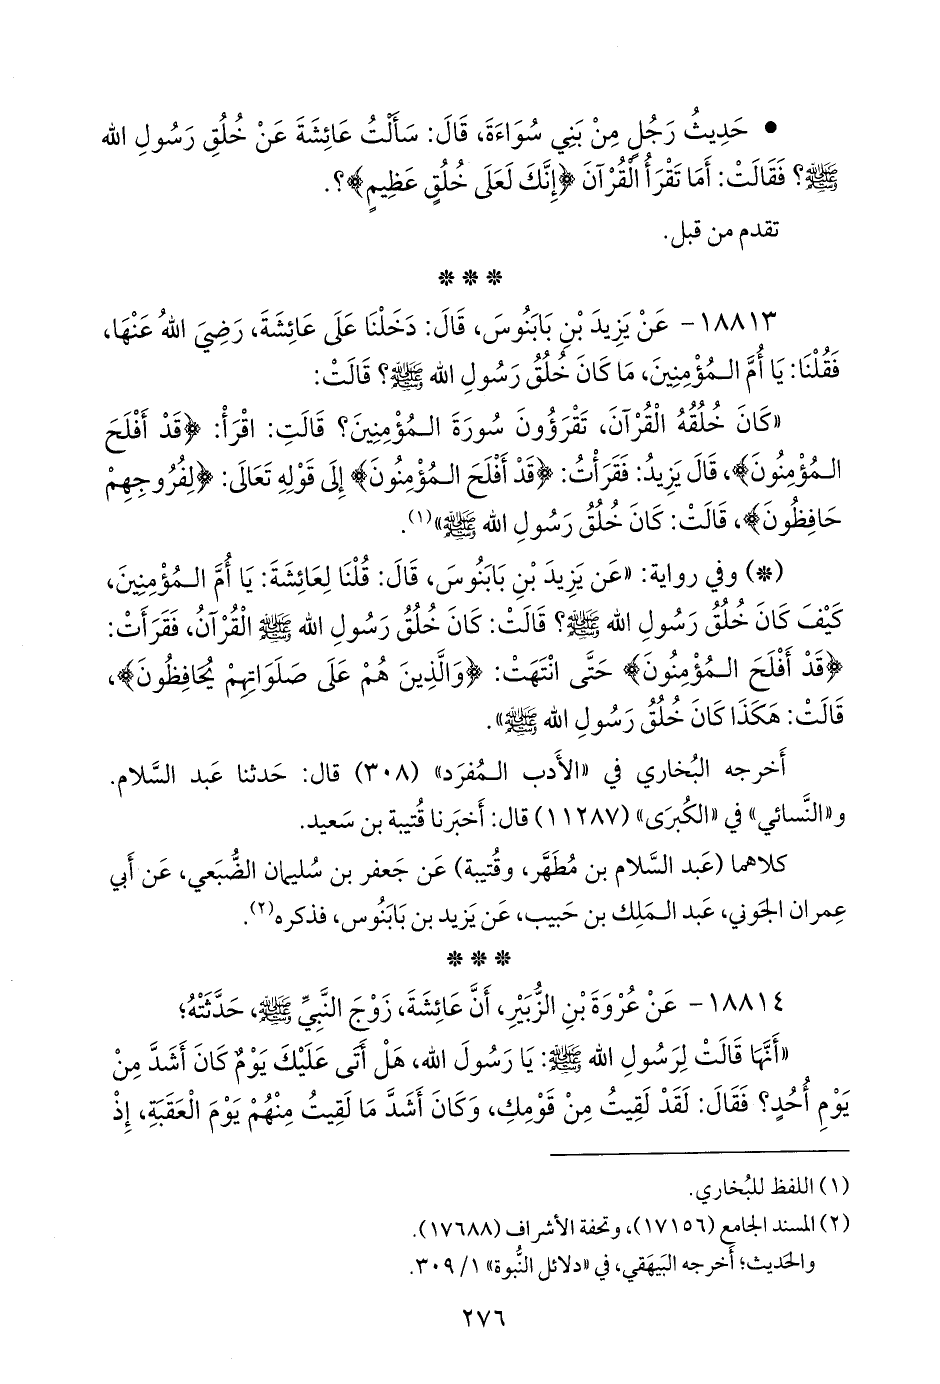 • حَدِيثُ رَجُلٍ مِنْ بَنِي سُوَاءَةَ، قَالَ: سَأَلْتُ عَائِشَةَ عَنْ خُلُقِ رَسُولِ الله
ﷺ؟ فَقَالَتْ: أَمَا تَقْرَأُ الْقُرْآنَ ﴿إِنَّكَ لَعَلَى خُلُقٍ عَظِيمٍ﴾؟.
تقدم من قبل.
* * *
١٨٨١٣ - عَنْ يَزِيدَ بْنِ بَابَنُوسَ، قَالَ: دَخَلْنَا عَلَى عَائِشَةَ، رَضِيَ اللهُ عَنْهَا،
فَقُلْنَا: يَا أُمَّ الـمُؤْمِنِينَ، مَا كَانَ خُلُقُ رَسُولِ الله ﷺ؟ قَالَتْ:
«كَانَ خُلُقُهُ الْقُرْآنَ، تَقْرَؤُونَ سُورَةَ الـمُؤْمِنِينَ؟ قَالَتِ: اقْرَأْ: ﴿قَدْ أَفْلَحَ
الـمُؤْمِنُونَ﴾، قَالَ يَزِيدُ: فَقَرَأْتُ: ﴿قَدْ أَفْلَحَ الـمُؤْمِنُونَ﴾ إِلَى قَوْلِهِ تَعَالَى: ﴿لِفُرُوجِهِمْ
حَافِظُونَ﴾، قَالَتْ: كَانَ خُلُقُ رَسُولِ الله ﷺ»(١).
(*) وفي رواية: «عَن يَزِيدَ بْنِ بَابَنُوسَ، قَالَ: قُلْنَا لِعَائِشَةَ: يَا أُمَّ الـمُؤْمِنِينَ،
كَيْفَ كَانَ خُلُقُ رَسُولِ الله ﷺ؟ قَالَتْ: كَانَ خُلُقُ رَسُولِ الله ﷺ الْقُرْآنُ، فَقَرَأَتْ:
﴿قَدْ أَفْلَحَ الـمُؤْمِنُونَ﴾ حَتَّى انْتَهَتْ: ﴿وَالَّذِينَ هُمْ عَلَى صَلَوَاتِهِمْ يُحَافِظُونَ﴾،
قَالَتْ: هَكَذَا كَانَ خُلُقُ رَسُولِ الله ﷺ».
أَخرجه البُخاري في «الأَدب الـمُفرَد» (٣٠٨) قال: حَدثنا عَبد السَّلام.
و«النَّسائي» في «الكُبرَى» (١١٢٨٧) قال: أَخبَرنا قُتيبة بن سَعيد.
كلاهما (عَبد السَّلام بن مُطَهَّر، وقُتيبة) عَن جَعفر بن سُليمان الضُّبَعي، عَن أَبي
عِمران الجَوني، عَبد الـمَلِك بن حَبيب، عَن يَزيد بن بَابَنُوس، فذكره(٢).
* * *
١٨٨١٤ - عَنْ عُرْوَةَ بْنِ الزُّبَيْرِ، أَنَّ عَائِشَةَ، زَوْجَ النَّبِيِّ ﷺ، حَدَّثَتْهُ؛
«أَنَّهَا قَالَتْ لِرَسُولِ الله ﷺ: يَا رَسُولَ الله، هَلْ أَتَى عَلَيْكَ يَوْمٌ كَانَ أَشَدَّ مِنْ
يَوْمِ أُحُدٍ؟ فَقَالَ: لَقَدْ لَقِيتُ مِنْ قَوْمِكِ، وَكَانَ أَشَدَّ مَا لَقِيتُ مِنْهُمْ يَوْمَ الْعَقَبَةِ، إِذْ
(١) اللفظ للبُخاري.
(٢) المسند الجامع (١٧١٥٦)، وتحفة الأشراف (١٧٦٨٨).
والحَديث؛ أَخرجه البَيهَقي، في «دلائل النُّبوة» ١/ ٣٠٩.
٢٧٦